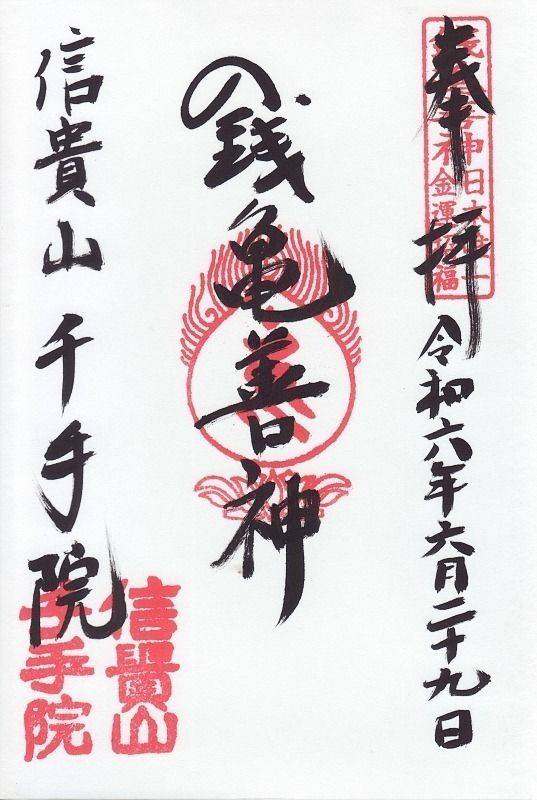 奉拝
令和六年六月二十九日
銭亀善神
信貴山 千手院
信貴山
千手院